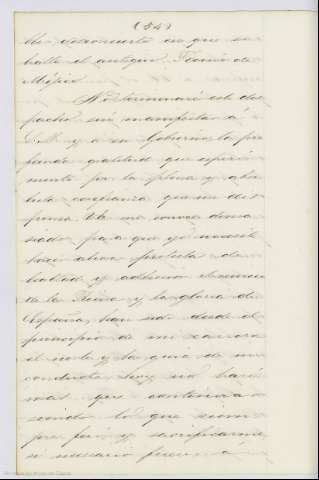 (548)
de desconcierto en que se
halla el antiguo Reino de
Méjico.
No terminaré este des
pacho sin manifestar á
S. M. y á su Gobierno la pro
funda gratitud que esperi
mento por la plena y abso
luta confianza que me dis
pensa. V. E. me conoce dema
siado para que yo necesite
hacer ahora protesta de
lealtad y adhesion. el servicio
de la Reina y la gloria de
España, han sido desde el
principio de mi carrera
el norte y la guia de mi
conducta. hoy no haré
mas que continuar
siendo lo que siem
pre fuí y sacrificarme
si necesario fuere á